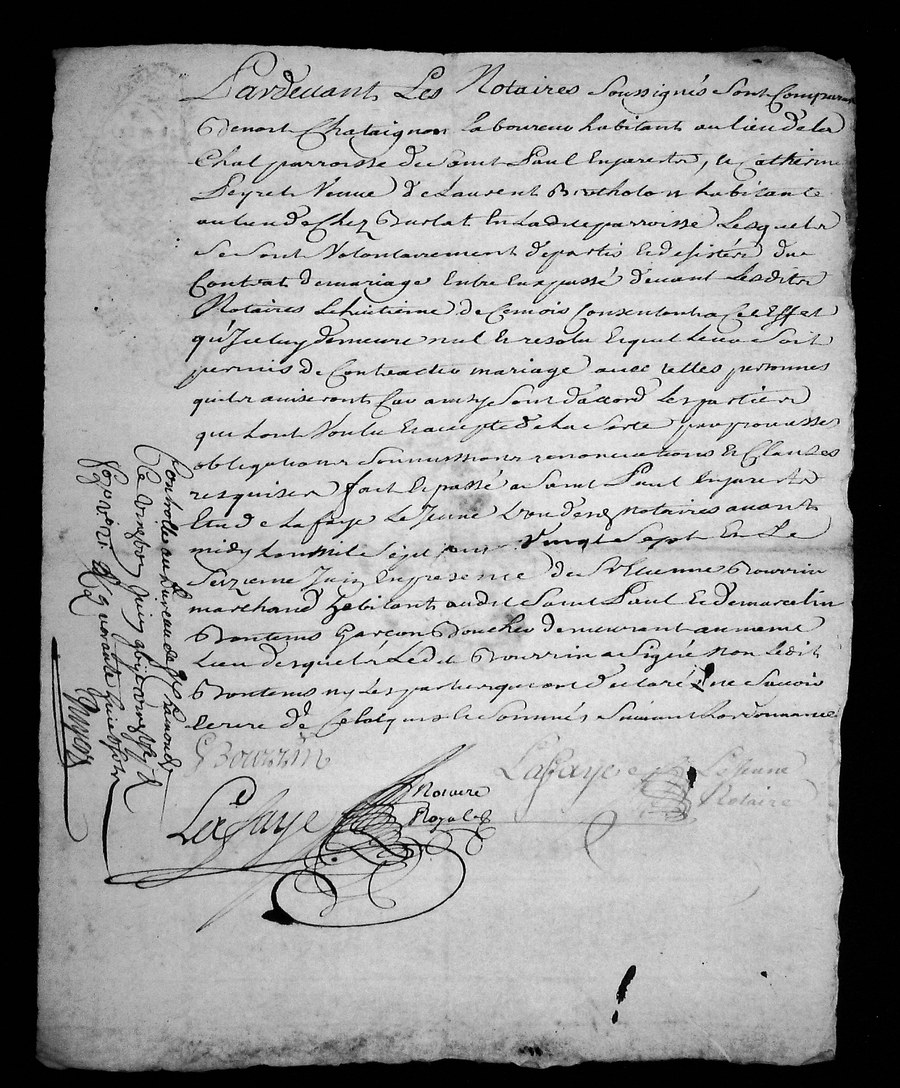 Pardevant Les Notaires Soussignés Sont Comparus
Benoit Chataignon laboureur habitant au lieu de la
Chal parroisse de Saint Paul Enjarestz, et Catherine
Peyret Veuve de Laurent Bertholon habitante
au lieu de Chez Burlat En ladite parroisse Lesquels
Se Sont Volontairement departis Et desistéz du
Contrat de mariage Entre Eux passé devant Lesdits
Notaires Le huitieme de Ce mois Consentant a Cet Effet
qu'Iceluy demeure nul Et resolu Et quil Leur Soit
permis de Contracter mariage avec telles personnes
quils aviseront Car ainsy Sont d'accord Les parties
qui L'ont Voulu Et accepté de La Sorte par promesses
obligations Soumissions renonciations Et Clauses
requises fait Et passé a Saint Paul Enjarestz
Etude Lafaye Le Jeune L'un desd notaires avant
midy L'an mil Sept Cent Vingt Sept Et Le
Seizieme Juin En presence de Sr Etienne Bourrin
marchand habitant audit Saint Paul Et de marcelin
Bontems Garçon Boucher demeurant au meme
Lieu desquels Ledit Bourrin a Signé non Ledit
Bontems ny Les parties qui ont declaré ne Savoir
Ecrire de Ce Enquis Et Sommés Suivant L'ordonnance
E Bourrin
Lafaye Le Jeune
Notaire
Lafaye Notaire
Royal
Controllé au Bureau de St Chamond
Le vingt Juin
quarante huit Sols